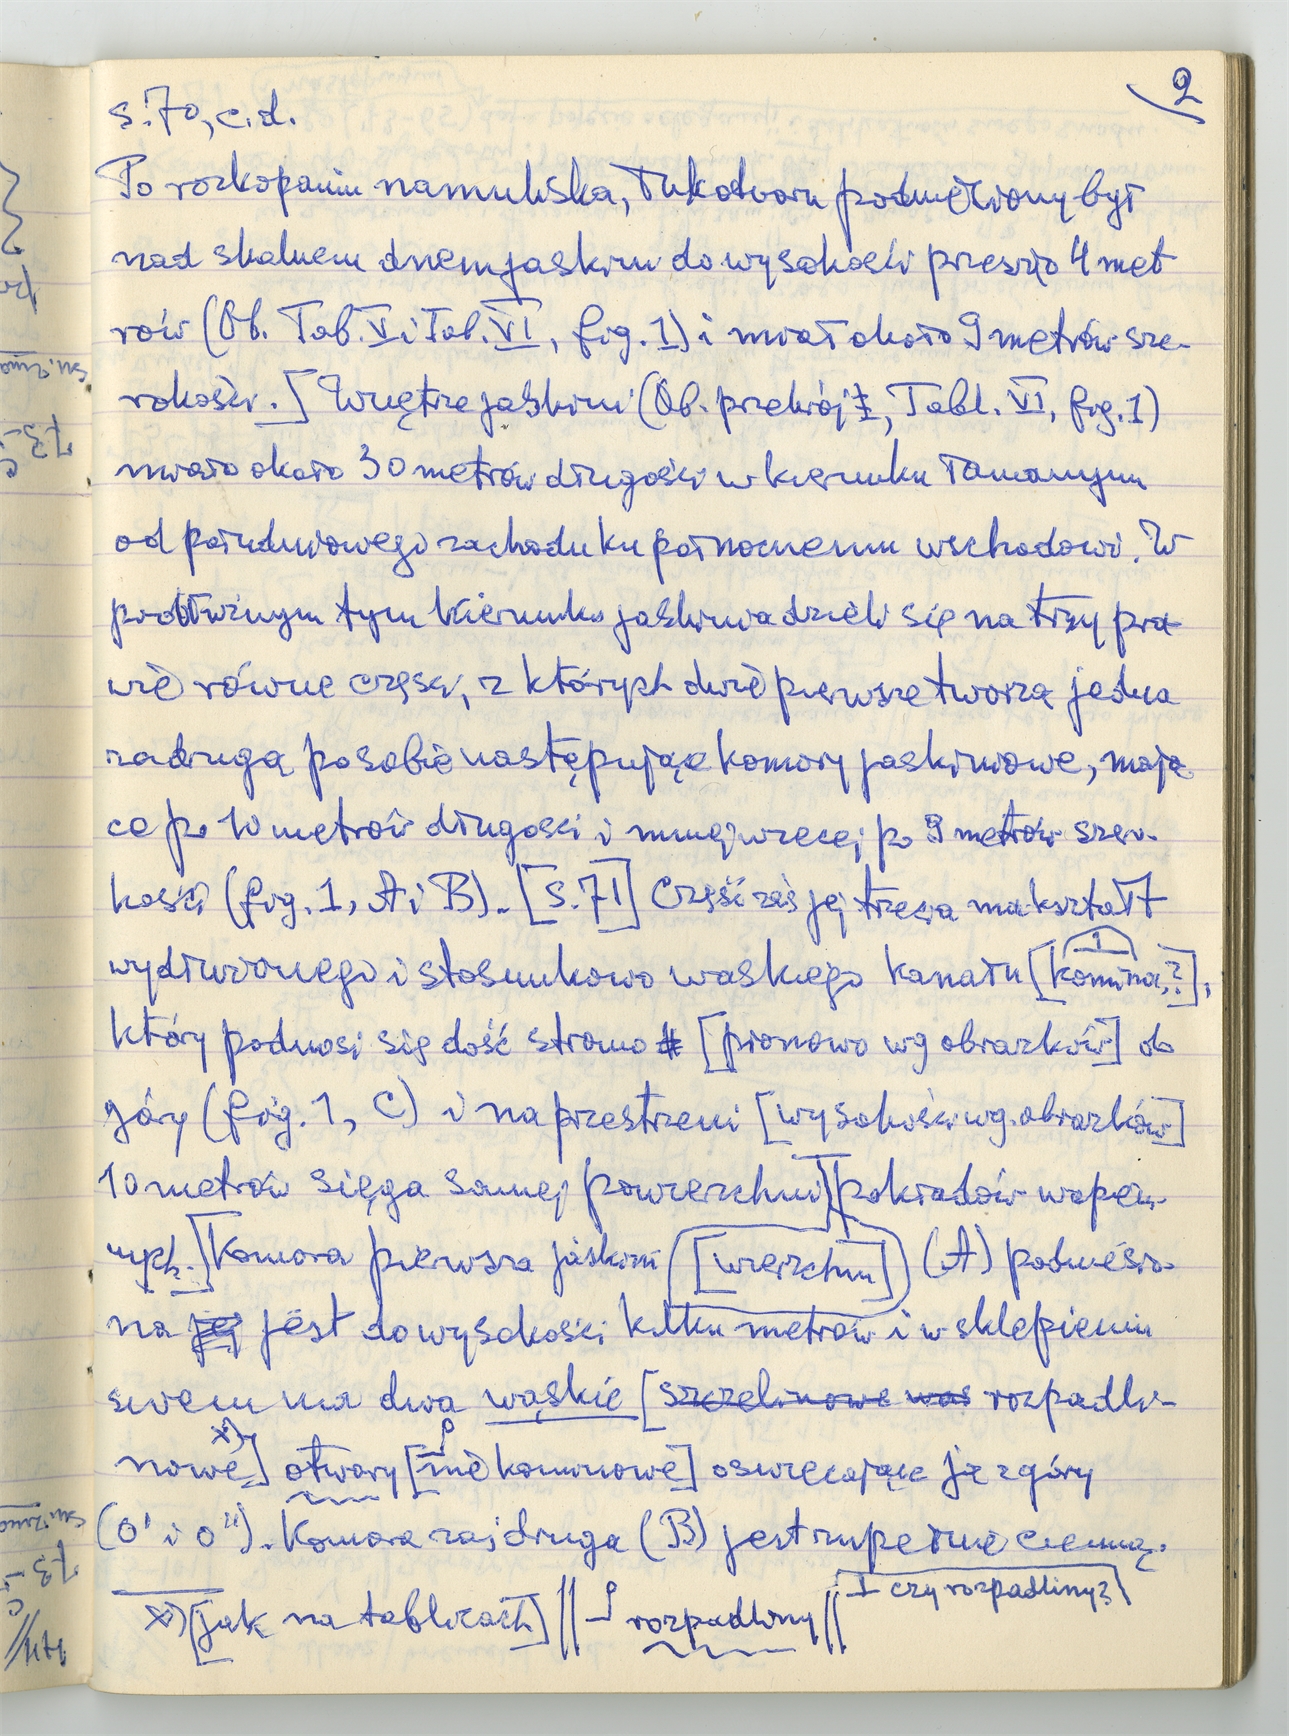 2
s. 70, c.d.
Po rozkopaniu namuliska, łuk otworu podniesiony był
nad skalnem dnem jaskini do wysokości przeszło 4 met
rów (Ob. Tab. V i Tab. VI, fig. 1) i miał około 9 metrów sze-
rokości.] Wnętrze jaskini (Ob. przekrój I, Tabl. VI, fig. 1)
miało około 30 metrów długości w kierunku łamanym
od południowego zachodu ku północnemu wschodowi. W
podłużnym tym kierunku jaskinia dzieli się na trzy pra-
wie równe części, z których dwie pierwsze tworzą jedna
za drugą po sobie następujące komory jaskiniowe, mają
ce po 10 metrów długości i mniej więcej po 9 metrów szero-
kości (fig. 1, A i B). [s. 71] Część zaś jej trzecia ma kształt
wydłużonego i stosunkowo wąskiego kanału [komina,?],
który podnosi się dość stromo [pionowo wg obrazków] do
góry (fig. 1, C) i na przestrzeni [wysokości wg. obrazków]
10 metrów sięga samej powierzchni pokładów wapien-
nych.] Komora pierwsza jaskini [wierzchni] (A) podniesio-
na jej jest do wysokości kilku metrów i w sklepieniu
swem ma dwa wąskie [szczelinowe was rozpadli-
nowe x)] otwory [nie kominowe] oświecające ją z góry
(o' i o"). Komora zaś druga (B) jest zupełnie ciemną.
x) [jak na tablicach] || rozpadliny || 1 czy rozpadliny?